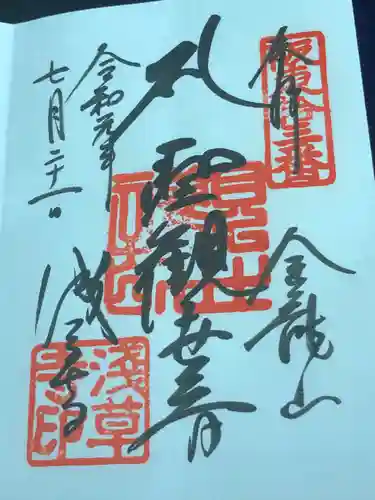 奉拝
坂東拾三番
金龍山
聖観世音
令和元年
七月二十一日
浅草寺
浅草寺印